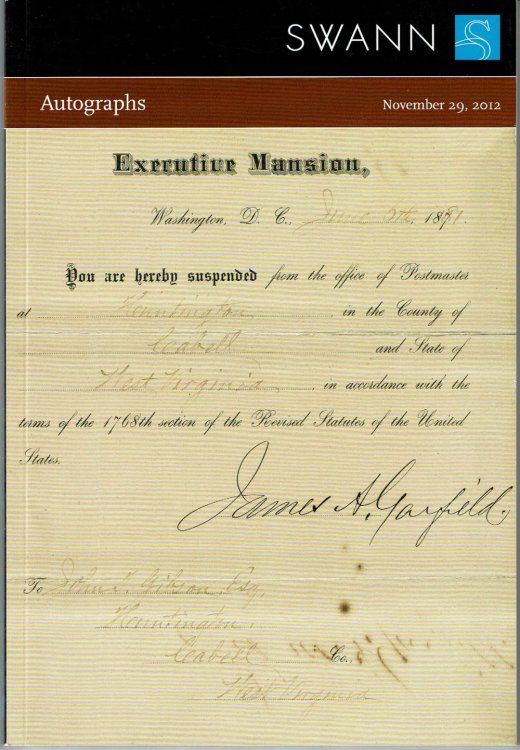 SWANN
Autographs November 29, 2012
Executive Mansion,
Washington, D. C., June 1881.
You are hereby suspended from the office of Postmaster
at Huntington in the County of
Cabell and State of
West Virginia in accordance with the
terms of the 1768th section of the Revised Statutes of the United
States.
James A. Garfield.
To John Gibson, Esq,
Huntington,
Cabell Co.,
West Virginia